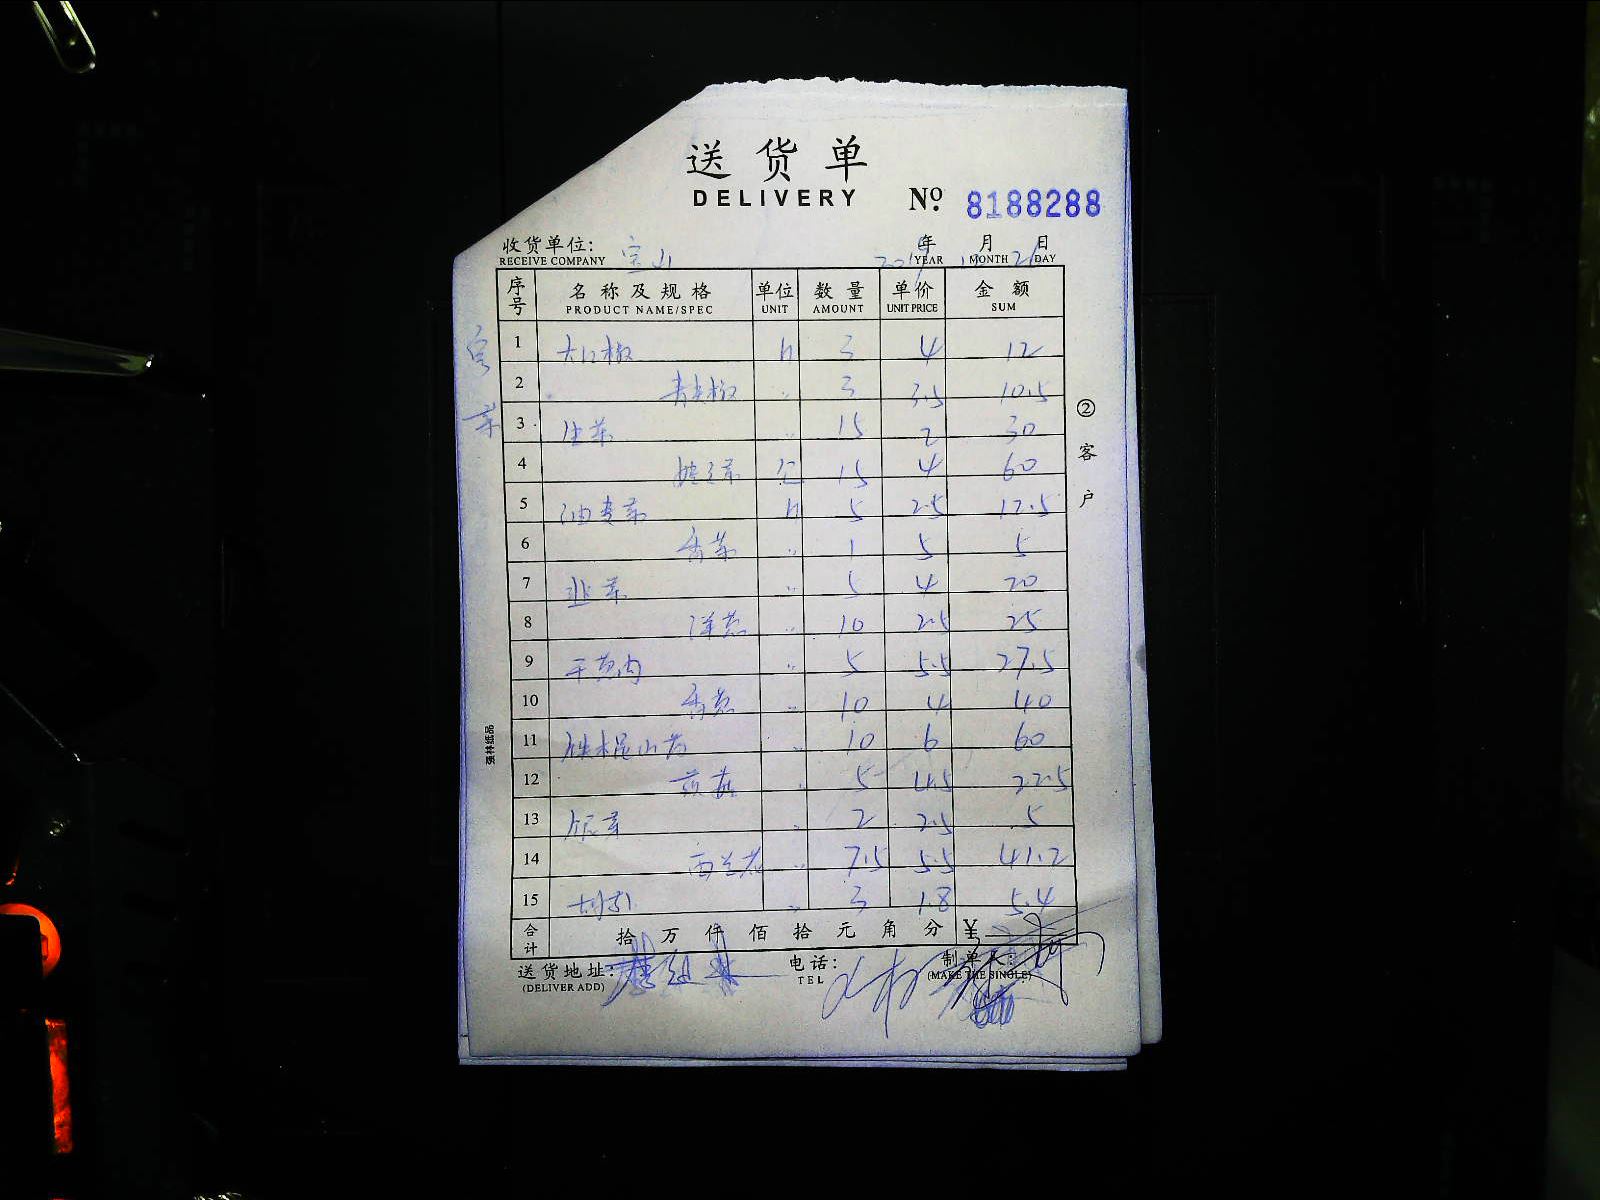 送货单
DELIVERY
№ 8188288
收货单位: 宝山 年 月 日
RECEIVE COMPANY YEAR MONTH DAY
序号 名称及规格 单位 数量 单价 金额
PRODUCT NAME/SPEC UNIT AMOUNT UNIT PRICE SUM
1 大红椒 3 4 12
2 青尖椒 〃 3 3.5 10.5
3 生菜 〃 15 2 30
4 娃娃菜 公 15 4 60
5 油麦菜 5 2.5 12.5
6 香菜 〃 1 5 5
7 韭菜 〃 5 4 20
8 洋葱 〃 10 2.5 25
9 干黄肉 〃 5 5.5 27.5
10 香葱 〃 10 4 40
11 铁棍山药 〃 10 6 60
12 〃 5 4.5 22.5
13 银芽 〃 2 2.5 5
14 西兰花 〃 7.5 5.5 41.2
15 〃 3 1.8 5.4
合计 拾 万 仟 佰 拾 元 角 分 ¥
送货地址: 电话: 制单人:
(DELIVER ADD) TEL (MAKE THE SINGLE)
②客户
强林纸品